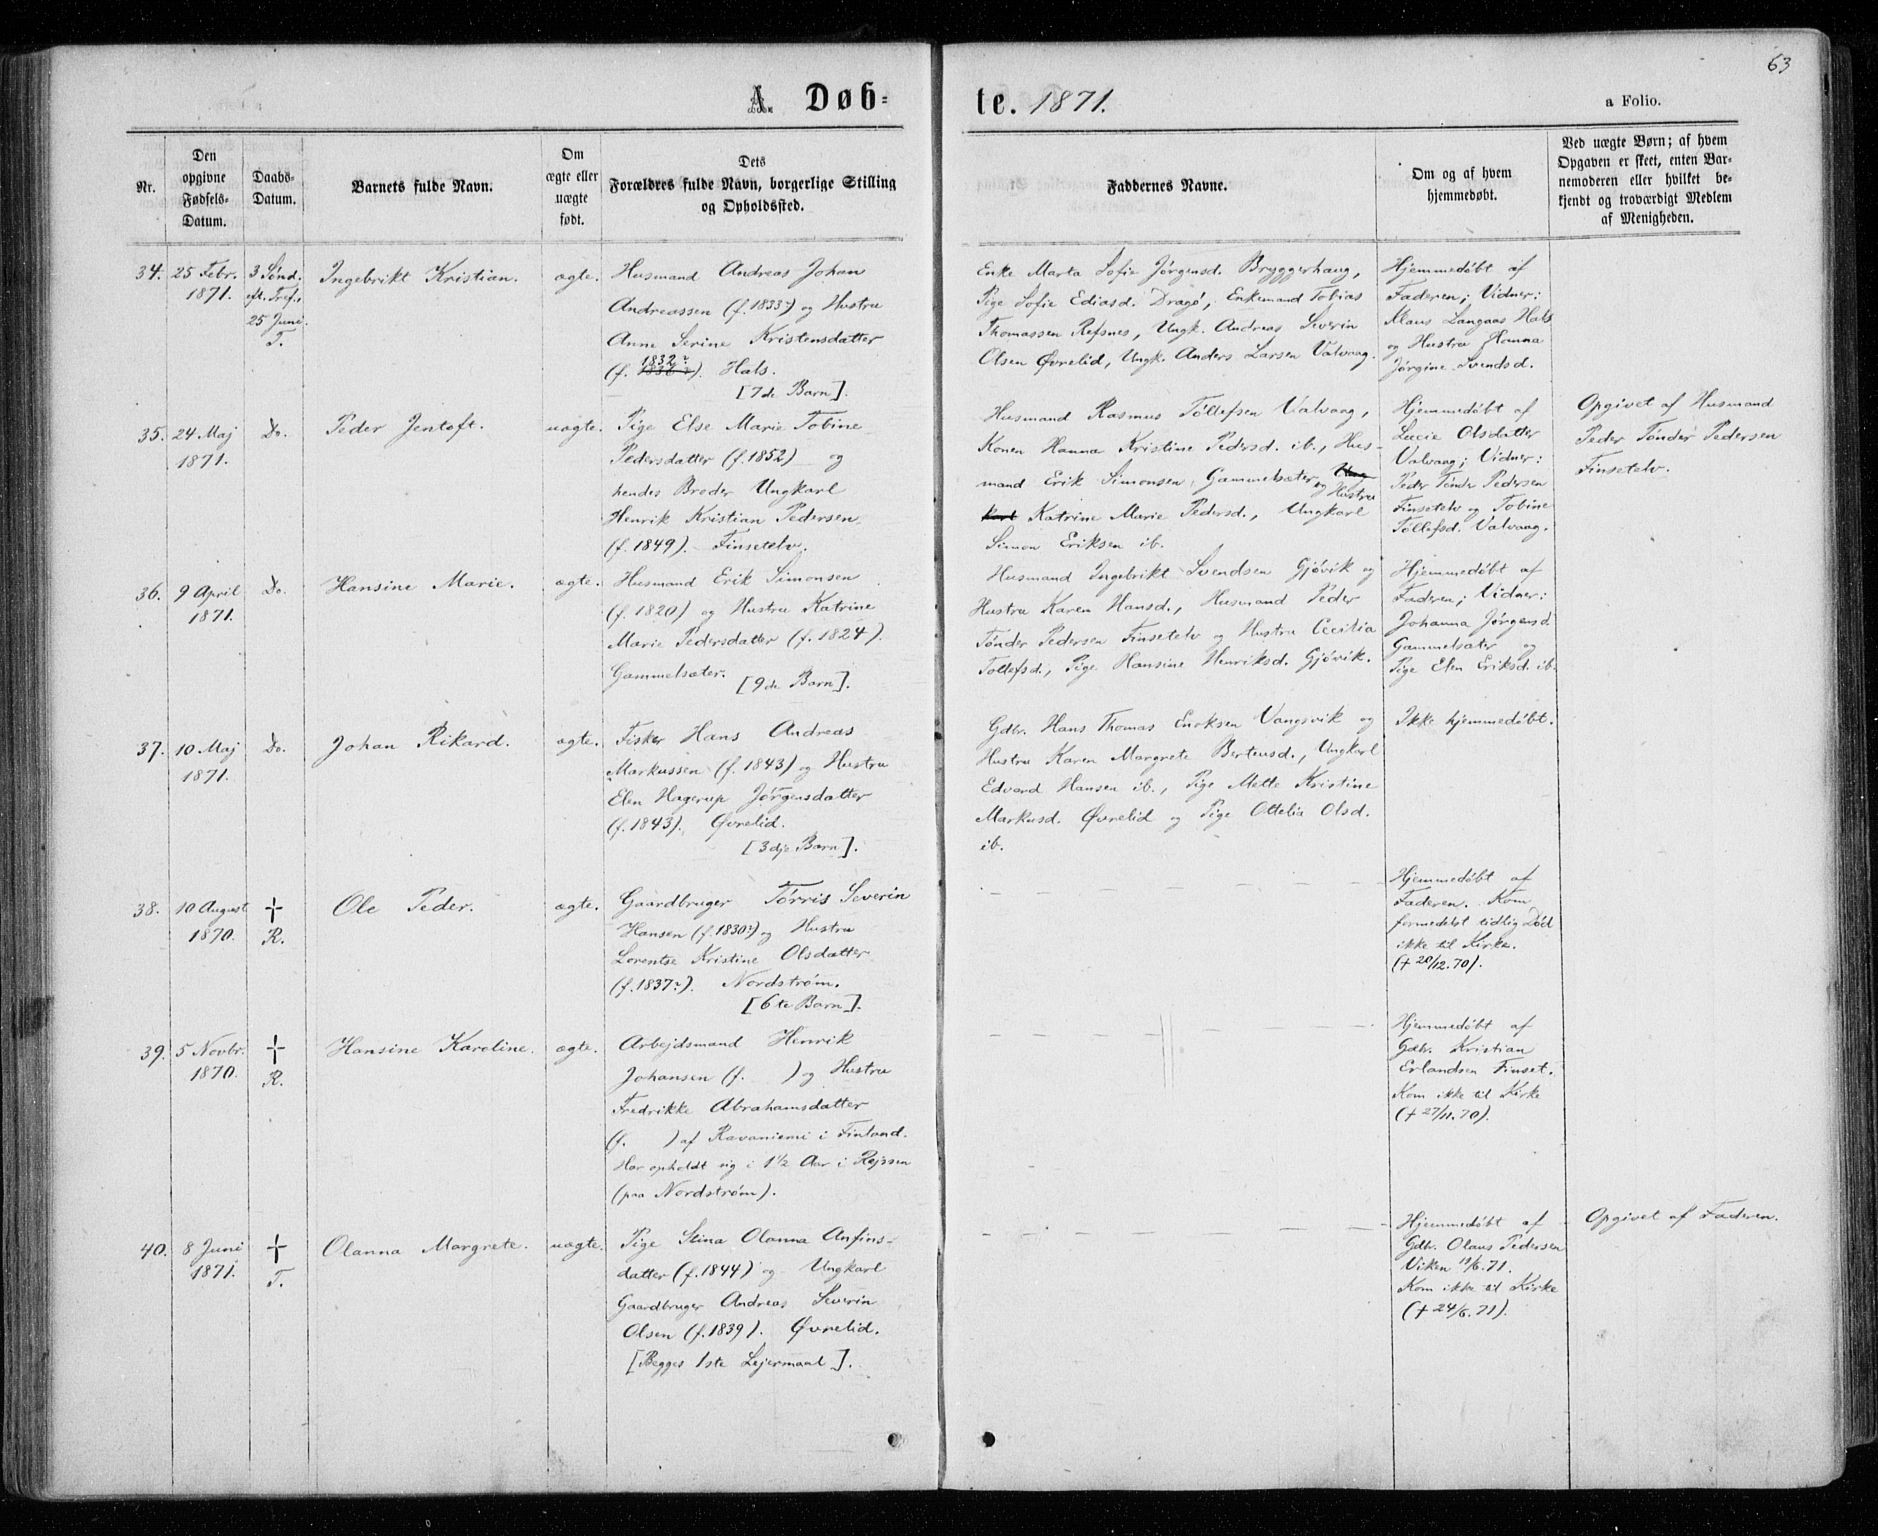 63
A. Døb=
te. 1871.
a Folio.
Nr.
Den
opgivne
Fødsels-
Datum.
Daabs-
Datum.
Barnets fulde Navn.
Om
ægte eller
uægte
født.
Dets
Forældres fulde Navn, borgerlige Stilling
og Opholdssted.
Faddernes Navne.
Om og af hvem
hjemmedøbt.
Ved uægte Børn; af hvem
Opgaven er skeet, enten Bar-
nemoderen eller hvilket be-
kjendt og troværdigt Medlem
af Menigheden.
34.
25 Febr.
1871.
3 Sønd.
eft. Tref.,
25 Juni.
T.
Ingebrikt Kristian.
ægte.
Husmand Andreas Johan
Andreassen (f. 1833?) og Hustru
Anne Serine Kristensdatter
1832?
(f. 1836?). Hals.
[7de Barn].
Enke Marta Sofie Jørgensd. Bryggerhaug,
Pige Sofie Ediasd. Dragø, Enkemand Tobias
Thomassen Refsnes, Ungk. Andreas Severin
Olsen Øvrelid, Ungk. Anders Larsen Valvaag.
Hjemmedøbt af
Faderen; Vidner:
Klaus Langaas Hals
og Hustru Hanna
Jørgine Svendsd.
35.
24 Maj
1871.
Do.
Peder Jentoft.
uægte.
Pige Else Marie Tobine
Pedersdatter (f. 1852) og
hendes Broder Ungkarl
Henrik Kristian Pedersen
(f. 1849). Finsetelv.
Husmand Rasmus Tøllefsen Valvaag,
Konen Hanna Kristine Pedersd. ib., Hus-
mand Erik Simonsen, Gammelsæter Ung
og Hustru
karl Katrine Marie Pedersd., Ungkarl
Simon Eriksen ib.
Hjemmedøbt af
Lucie Olsdatter
Valvaag; Vidner:
Peder Tønder Pedersen
Finsetelv og Tobine
Tøllefsd. Valvaag.
Opgivet af Husmand
Peder Tønder Pedersen
Finsetelv.
36.
9 April
1871.
Do.
Hansine Marie.
ægte.
Husmand Erik Simonsen
(f. 1820) og Hustru Katrine
Marie Pedersdatter (f. 1824).
Gammelsæter.
[9de Barn].
Husmand Ingebrikt Svendsen Gjøvik og
Hustru Karen Hansd., Husmand Peder
Tønder Pedersen Finsetelv og Hustru Cecilia
Tollefsd., Pige Hansine Henriksd. Gjøvik.
Hjemmedøbt af
Faderen; Vidner:
Johanna Jørgensd.
Gammelsæter og
Pige Elen Eriksd. ib.
37.
10 Maj
1871.
Do.
Johan Rikard.
ægte.
Fisker Hans Andreas
Markussen (f. 1843) og Hustru
Elen Hagerup Jørgensdatter
(f. 1843). Øvrelid.
[3dje Barn].
Gdbr. Hans Thomas Enoksen Vangsvik og
Hustru Karen Margrete Bertensd., Ungkarl
Edvard Hansen ib., Pige Mette Kristine
Markusd. Øvrelid og Pige Ottelia Olsd.
ib.
Ikke hjemmedøbt.
38.
10 August
1870.
†
R.
Ole Peder.
ægte.
Gaardbruger Tørris Severin
Hansen (f. 1830?) og Hustru
Lorentse Kristine Olsdatter
(f. 1837?). Nordstrøm.
[6te Barn].
Hjemmedøbt af
Faderen. Kom
formedelst tidlig Død
ikke til Kirke.
(† 20/12.70).
39.
5 Novbr.
1870.
†
R.
Hansine Karoline.
ægte.
Arbejdsmand Henrik
Johansen (f. ) og Hustru
Fredrikke Abrahamsdatter
(f. ) af Ravaniemi i Finland.
Har opholdt sig i 1½ Aar i Rejssen
(paa Nordstrøm).
Hjemmedøbt af
Gdbr. Kristian
Erlandsen Finset.
Kom ikke til Kirke
(† 27/11.70).
40.
8 Juni
1871.
†
T.
Olanna Margrete.
uægte.
Pige Stina Olanna Anfins-
datter (f. 1844) og Ungkarl
Gaardbruger Andreas Severin
Olsen (f. 1839). Øvrelid.
[Begges 1ste Lejermaal].
Hjemmedøbt af
Gdbr. Olaus Pedersen
Viken 11/6.71.
Kom ikke til Kirke
(† 24/6.71).
Opgivet af Faderen.